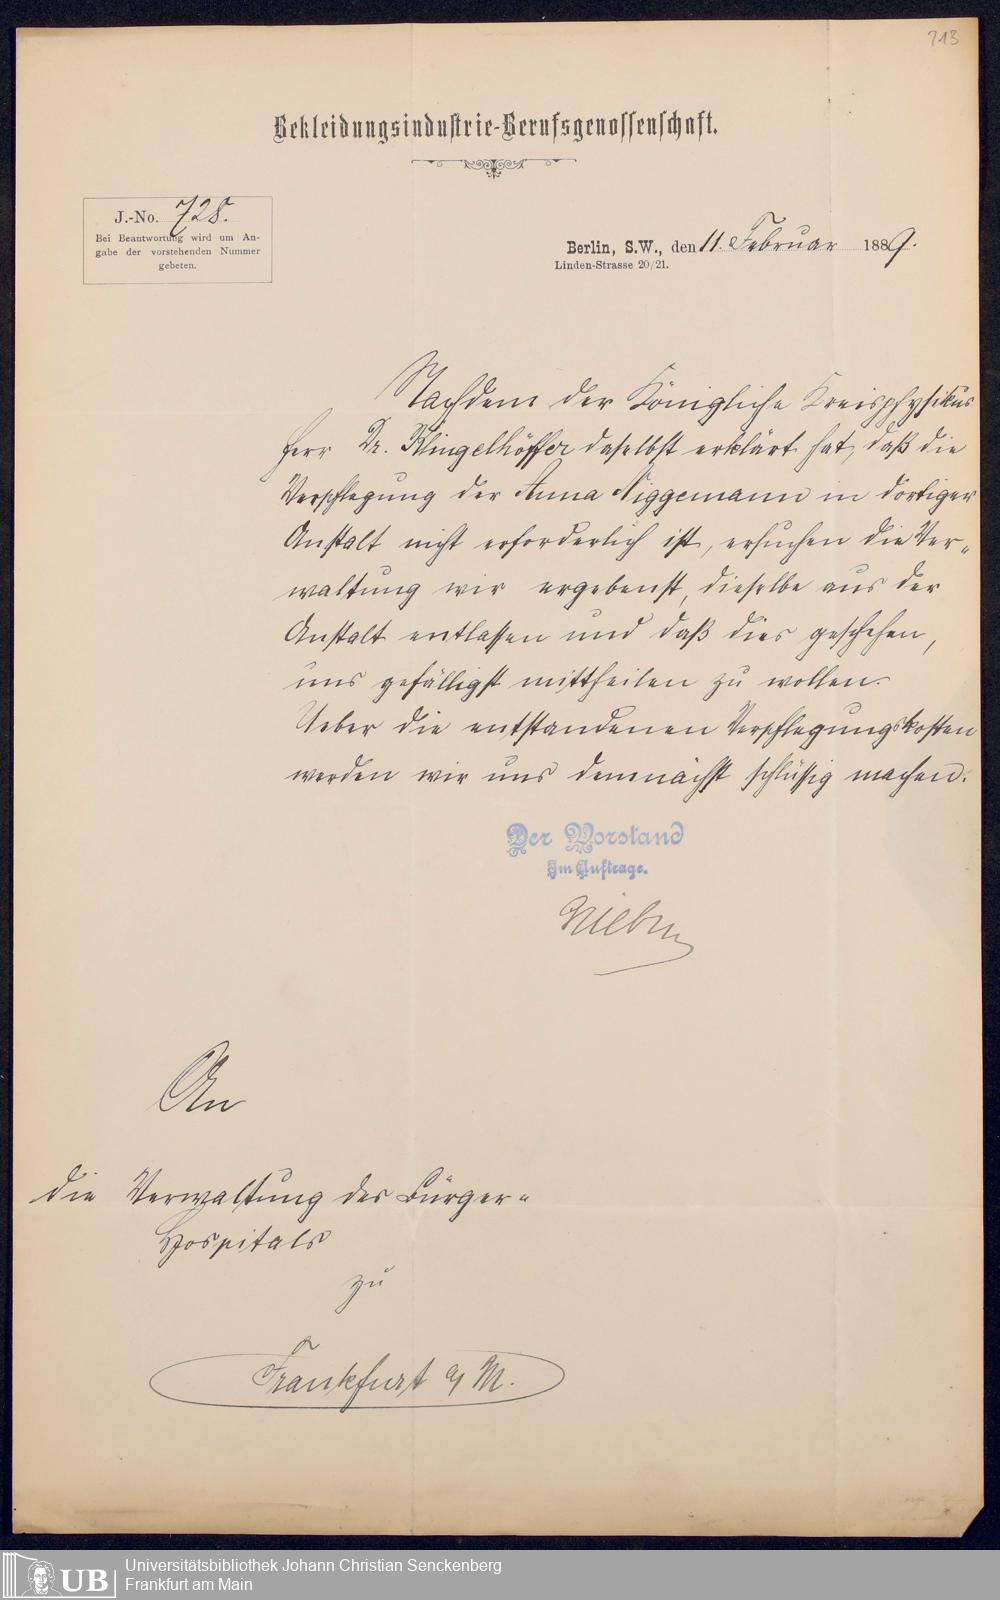 213
Bekleidungsindustrie-Berufsgenossenschaft.
J.-No. 728.
Bei Beantwortung wird um An-
gabe der vorstehenden Nummer
gebeten.
Berlin, S.W., den 11. Februar 1889.
Linden-Strasse 20/21.
Nachdem der Königliche Kreisphysikus
Herr Dr. Klingelhöffer daselbst erklärt hat, daß die
Verpflegung der Anna Niggemann in dortiger
Anstalt nicht erforderlich ist, ersuchen die Ver-
waltung wir ergebenst, dieselbe aus der
Anstalt entlassen und daß dies geschehen,
uns gefälligst mittheilen zu wollen.
Ueber die entstandenen Verpflegungskosten
werden wir uns demnächst schlüssig machen.
Der Vorstand
Im Auftrage.
An
die Verwaltung des Bürger-
Hospitals
zu
Frankfurt a/M.
UB
Universitätsbibliothek Johann Christian Senckenberg
Frankfurt am Main